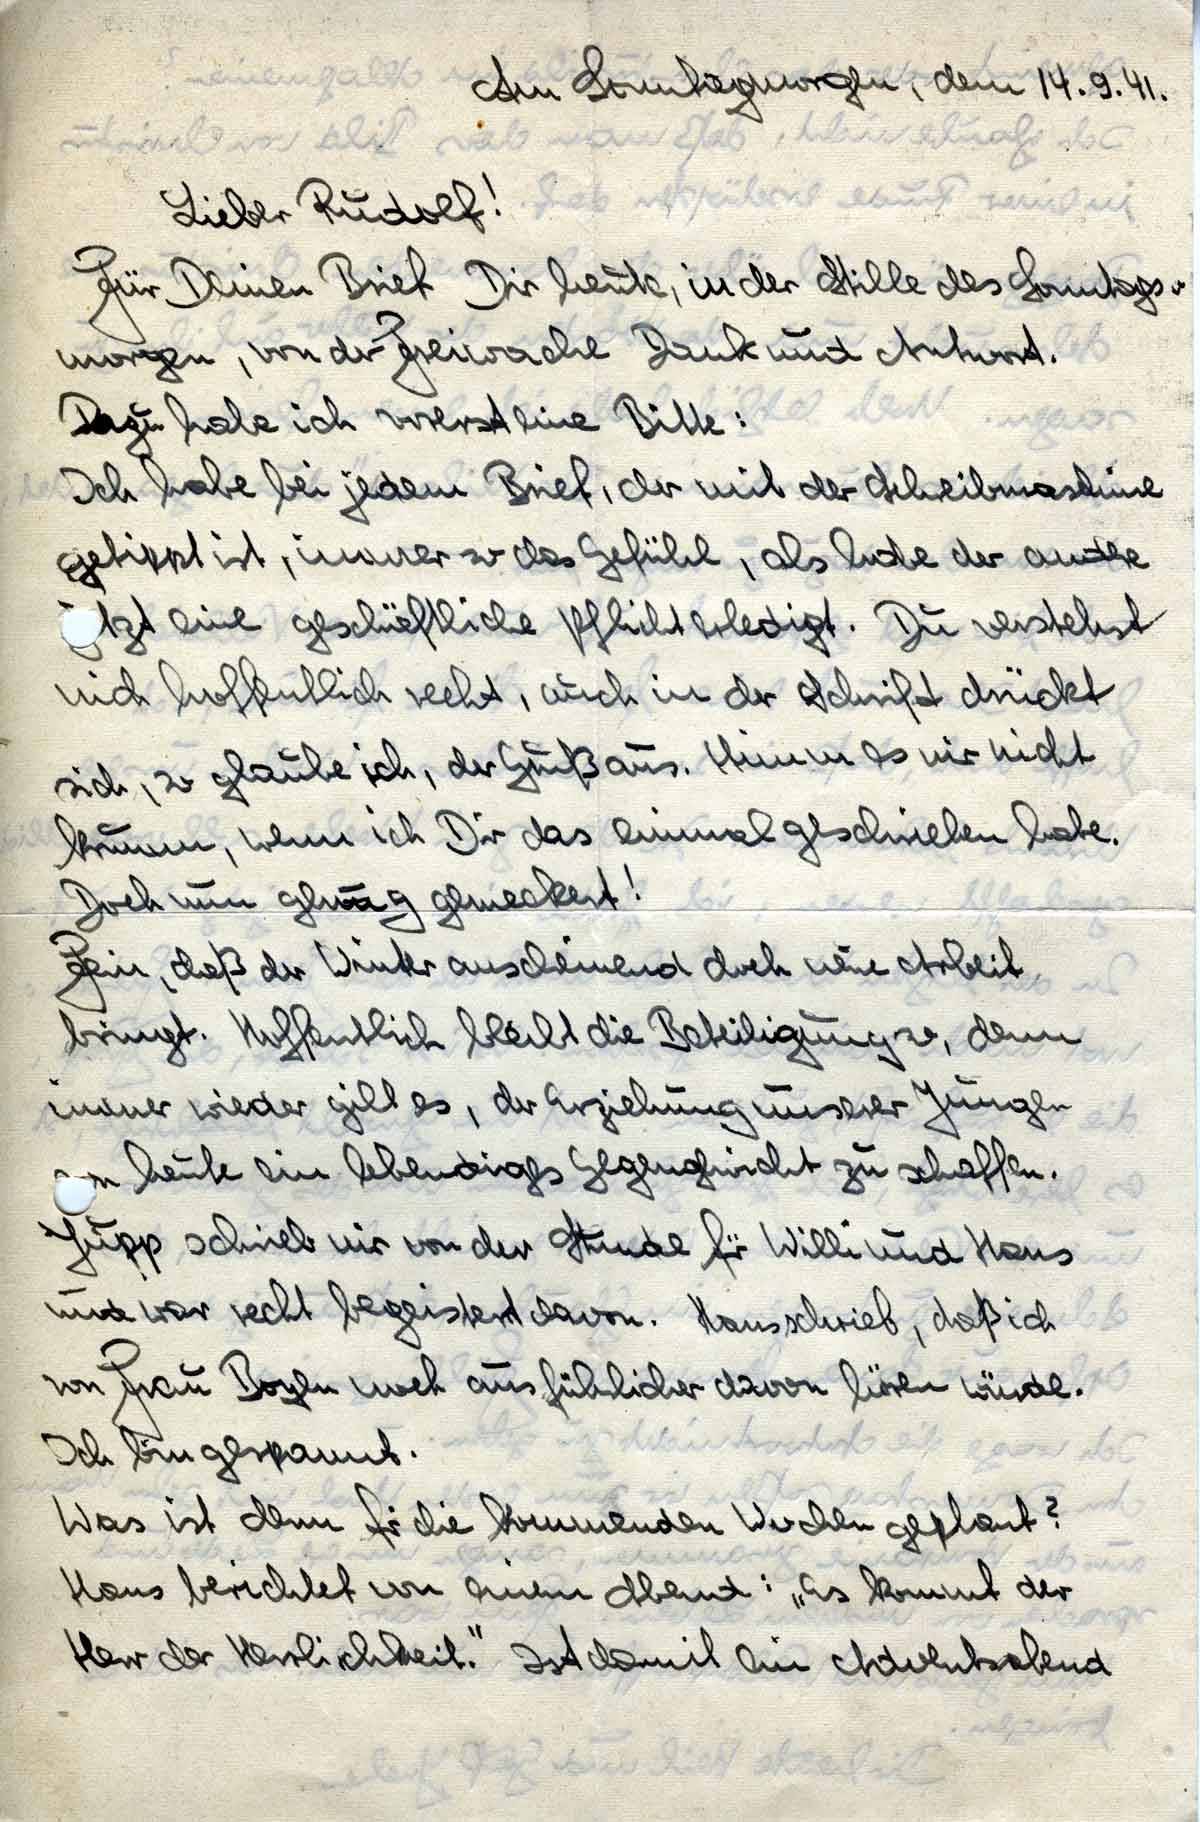 Am Sonntagmorgen, dem 14.9.41.
Lieber Rudolf!
Für Deinen Brief Dir heute, in der Stille des Sonntags-
morgen, von der Freiwache Dank und Antwort.
Dazu habe ich vorerst eine Bitte:
Ich habe bei jedem Brief, der mit der Schreibmaschine
getippt ist, immer so das Gefühl, als habe der andere
jetzt eine geschäftliche Pflicht erledigt. Du verstehst
mich hoffentlich recht, auch in der Schrift drückt
sich, so glaube ich, der Gruß aus. Nimm es mir nicht
krumm, wenn ich Dir das einmal geschrieben habe.
Doch nun genug gemeckert!
Fein, daß der Winter anscheinend doch neue Arbeit
bringt. Hoffentlich bleibt die Beteiligung so, denn
immer wieder gilt es, der Erziehung unserer Jungen
von heute ein lebendiges Gegengewicht zu schaffen.
Jupp schrieb mir von der Stunde für Willi und Hans
und war recht begeistert davon. Hans schrieb, daß ich
von Frau Boyen noch ausführlicher davon hören würde.
Ich bin gespannt.
Was ist denn für die kommenden Wochen geplant?
Hans berichtet von einem Abend: „Es kommt der
Herr der Herrlichkeit.“ Ist damit ein Adventsabend